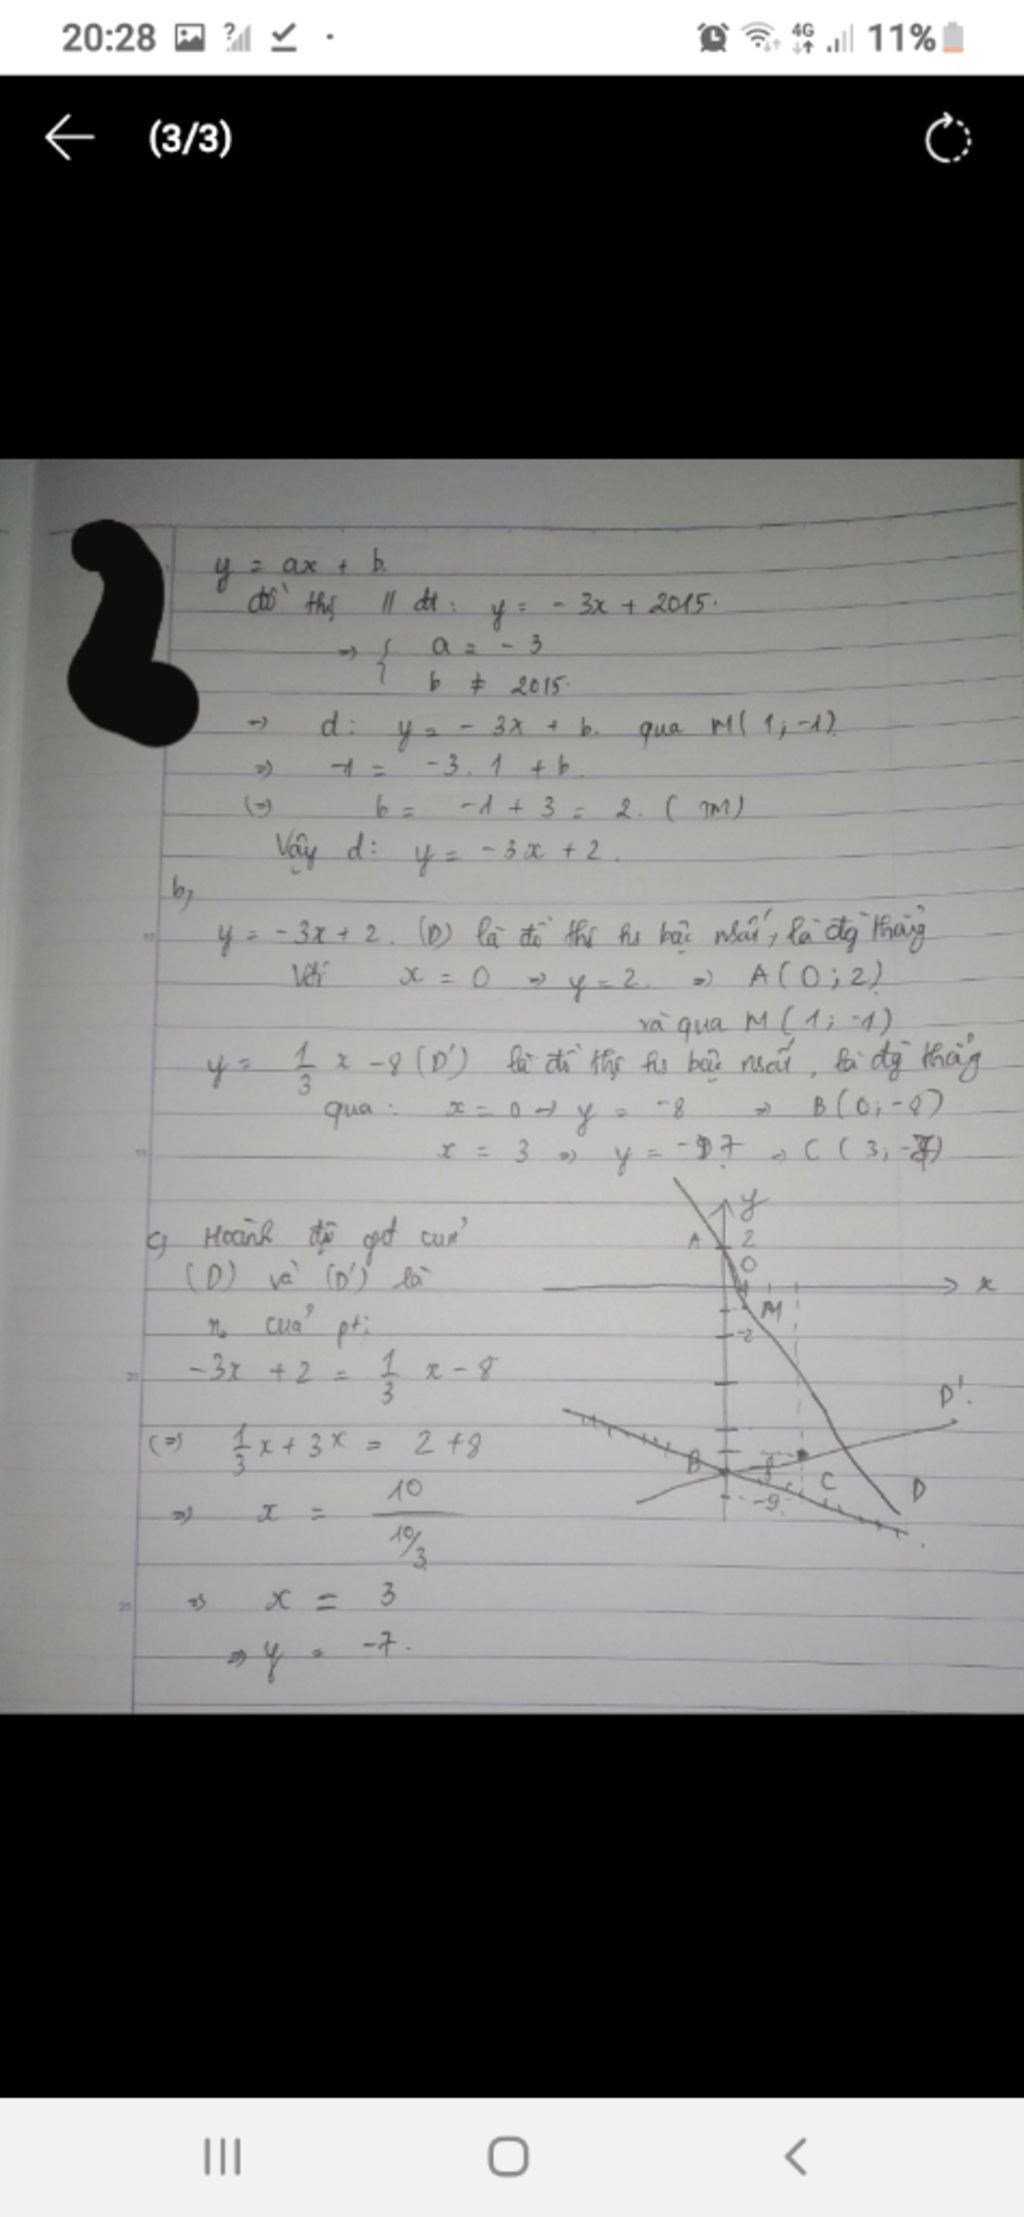 20:28
4G 11%
(3/3)
y = ax + b.
đồ thị // đt: y = - 3x + 2015.
=> { a = - 3
b ≠ 2015.
=> d: y = - 3x + b. qua M( 1; -1)
=> -1 = -3. 1 + b.
(=) b = -1 + 3 = 2. ( TM)
Vậy d: y = - 3x + 2.
b,
y = - 3x + 2. (D) là đồ thị hs bậc nhất, là đg thẳng
Với x = 0 => y = 2. => A( 0; 2)
và qua M ( 1; -1)
y = 1/3 x - 8 (D') là đồ thị hs bậc nhất, là đg thẳng
qua: x = 0 => y = -8 => B(0; -8)
x = 3 => y = -7 => C ( 3; -7)
c, Hoành độ gđ của
(D) và (D') là
n₀ của pt:
-3x + 2 = 1/3 x - 8
(=) 1/3 x + 3x = 2 + 8
=> x = 10 / 10/3
=> x = 3
=> y = -7.
y
A 2
0
x
M
-2
D'.
B -8
C D
-9